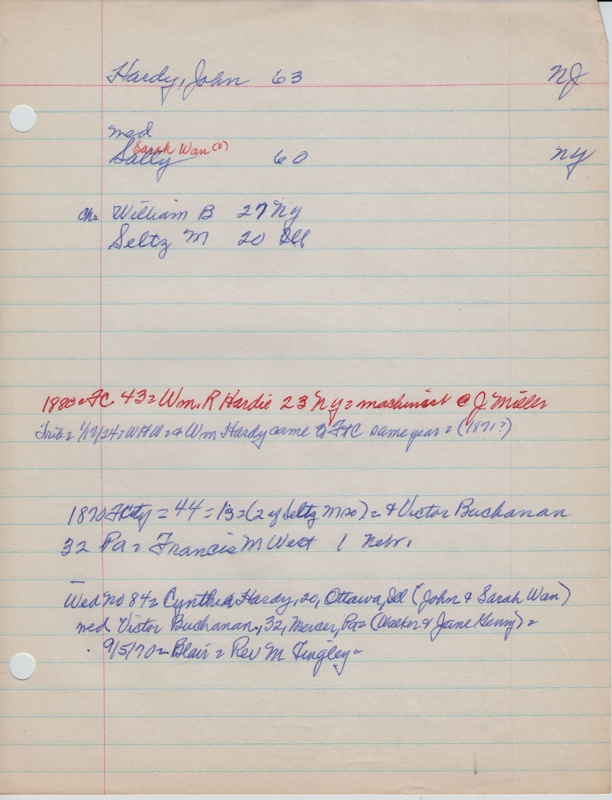 Hardy, John 63 NJ
med
Sarah Wan (?)
Sally 60 NY
ch= William B 27 Ny
Seltz M 20 Ill
1880 FC 43= Wm. R Hardie 23 Ny= mashinist @ J. Miller
Trib= 1/12/24= WHW= & Wm Hardy came to FtC same year= (1871?)
1870 = 44 = 13=(2 y Seltz M 20)= & Victor Buchanan
32 Pa= Francis M West 1 Nebr.
Wed No 84= Cynthia Hardy, 20, Ottawa, Ill (John & Sarah Wan)
med Victor Buchanan, 32, Mercer, Pa= (Walker & Jane Henry)=
9/5/70= Blair= Rev M Tingley=